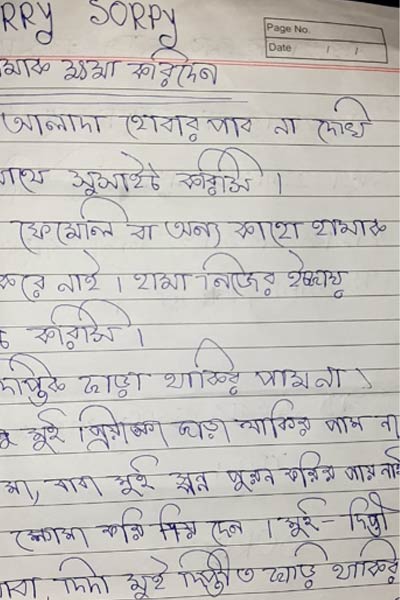 RRY SORPY
Page No.
Date / /
মোক ক্ষমা করিদেন
আলাদা হোবার পাব না দেখি
সুসাইট করিসি ।
ফেমেলি বা অন্য কাহো হামাক
করে নাই । হামা নিজের ইচ্ছায়
করিসি ।
ছাড়া থাকির পাম না ।
মুই প্রিয়াঙ্কা ছাড়া থাকির পাম না
মা, বাবা মুই স্বপ্ন পুরন করির পায় নাই
ক্ষেমা করি দেন । মুই - দিপ্তী
বাবা, দিদি মুই দিপ্তীত ছাড়ি থাকির